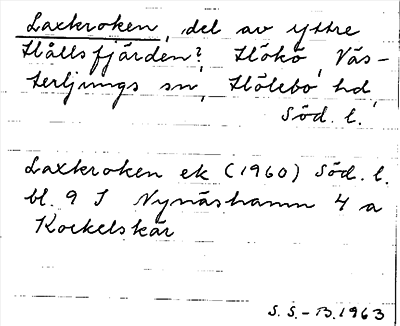 Laxkroken, del av yttre
Hållsfjärden? Hökö, Väs-
terljungs sn, Hölebo hd,
Söd. l.
Laxkroken ek (1960) Söd. l.
bl. 9 I Nynäshamn 4 a
Kockelskär
S. S.-B. 1963